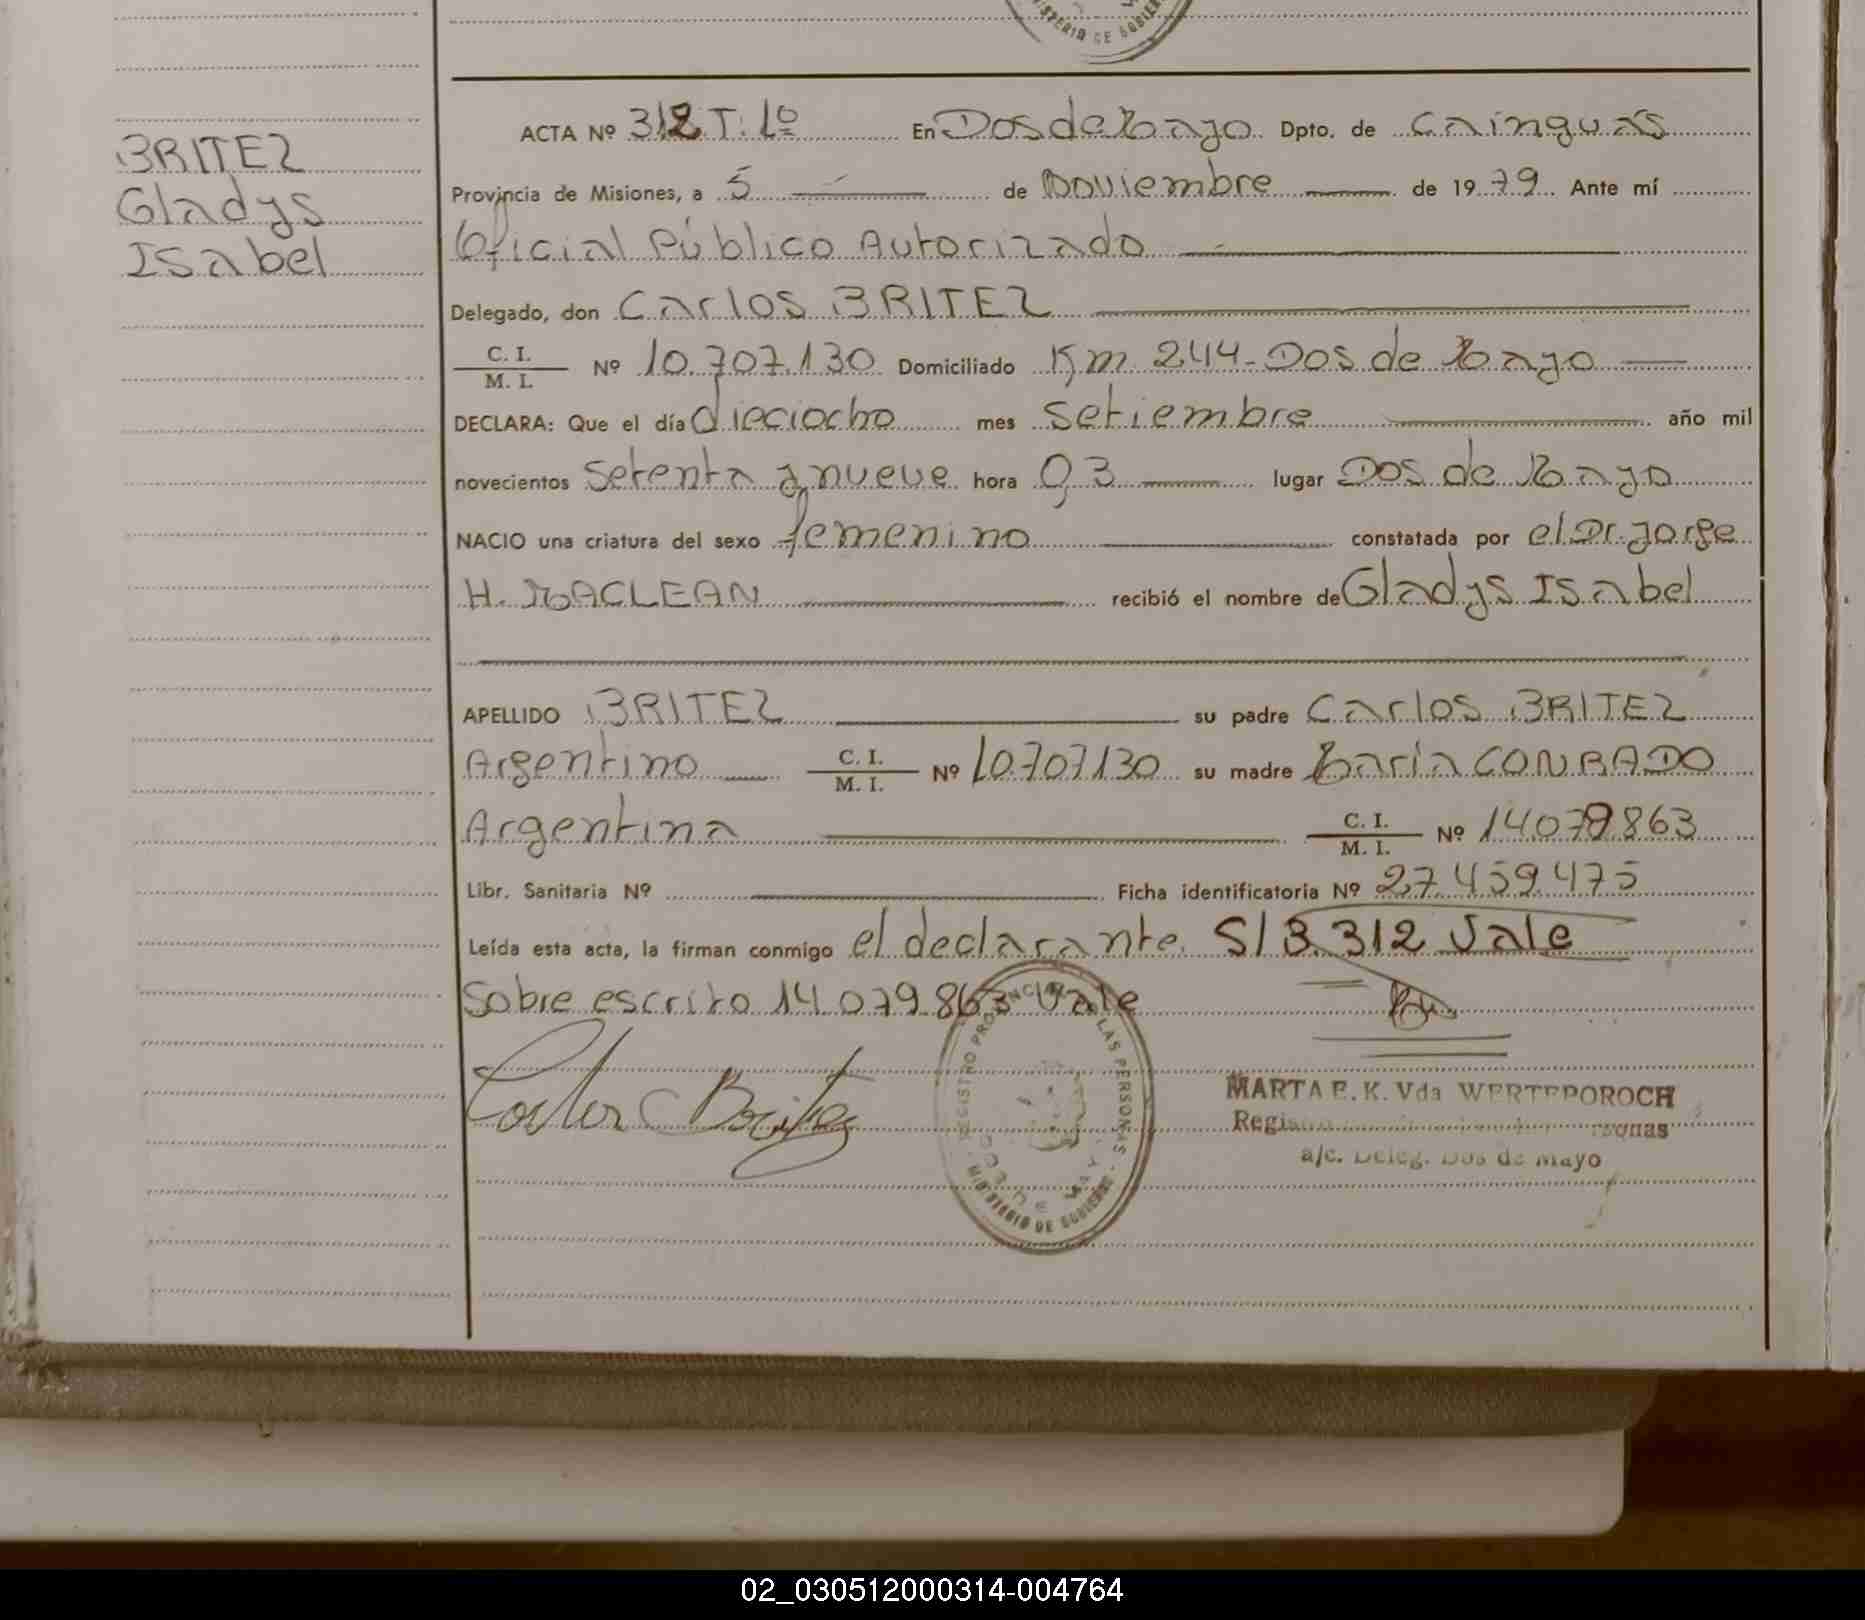 MINISTERIO DE GOBIERNO
ACTA Nº 312 T. 1º En Dos de Mayo Dpto. de Cainguas
BRITEZ
Gladys
Isabel
Provincia de Misiones, a 5 de Noviembre de 1979 Ante mí
Oficial Público Autorizado
Delegado, don Carlos BRITEZ
C. I. M. I. Nº 10.707.130 Domiciliado Km 244-Dos de Mayo
DECLARA: Que el día dieciocho mes Setiembre año mil
novecientos Setenta y nueve hora 03 lugar Dos de Mayo
NACIO una criatura del sexo femenino constatada por el Dr. Jorge
H. MACLEAN recibió el nombre de Gladys Isabel
APELLIDO BRITEZ su padre Carlos BRITEZ
Argentino C. I. M. I. Nº 10.707.130 su madre María CONRADO
Argentina C. I. M. I. Nº 14.079.863
Libr. Sanitaria Nº Ficha identificatoria Nº 27.459.475
Leída esta acta, la firman conmigo el declarante. S/ B. 312 Vale
Sobre escrito 14.079.863 Vale
Carlos Britez
REGISTRO PROVINCIAL DE LAS PERSONAS
DOS DE MAYO
MINISTERIO DE GOBIERNO
MARTA E. K. Vda WERTEPOROCH
a/c. Deleg. Dos de Mayo
02_030512000314-004764